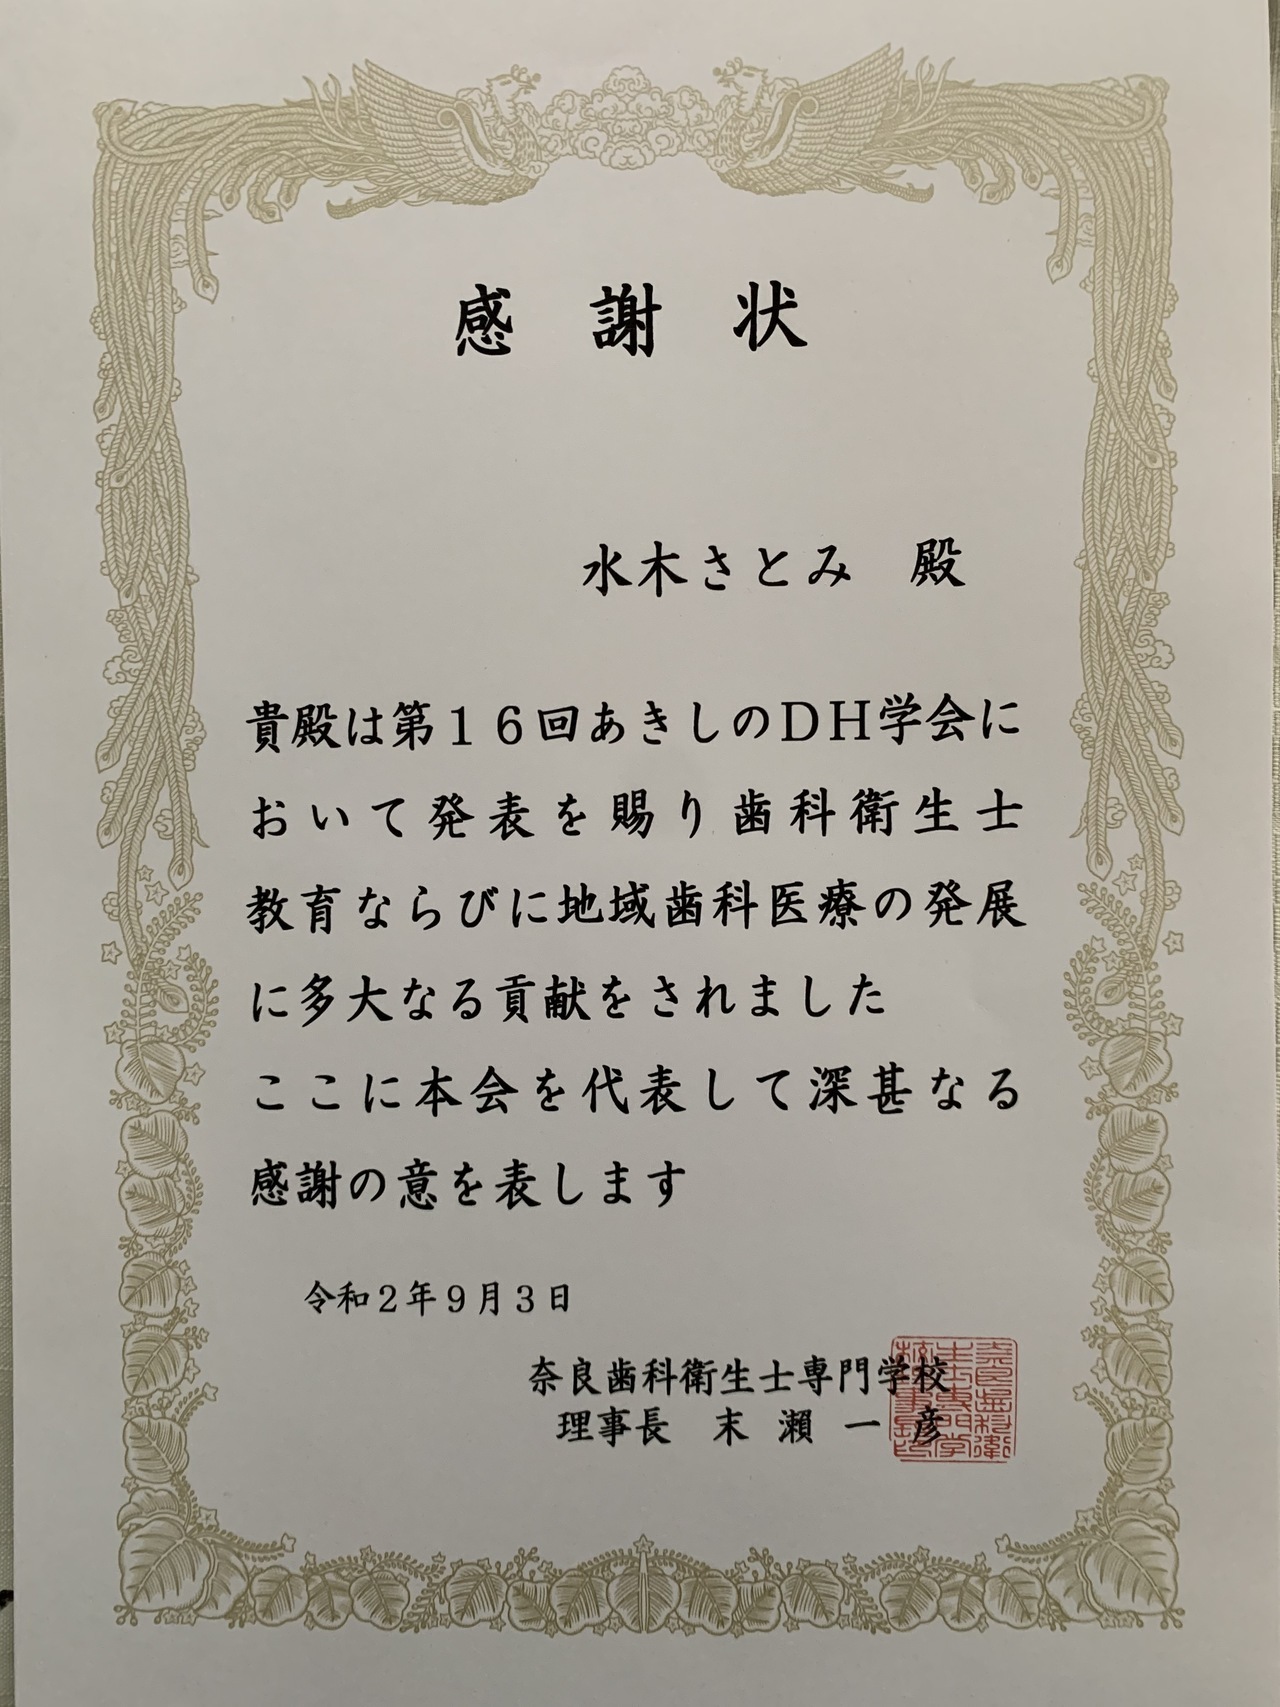 感謝状
水木さとみ 殿
貴殿は第16回あきしのDH学会に
おいて発表を賜り歯科衛生士
教育ならびに地域歯科医療の発展
に多大なる貢献をされました
ここに本会を代表して深甚なる
感謝の意を表します
令和2年9月3日
奈良歯科衛生士専門学校
理事長 末瀬一彦